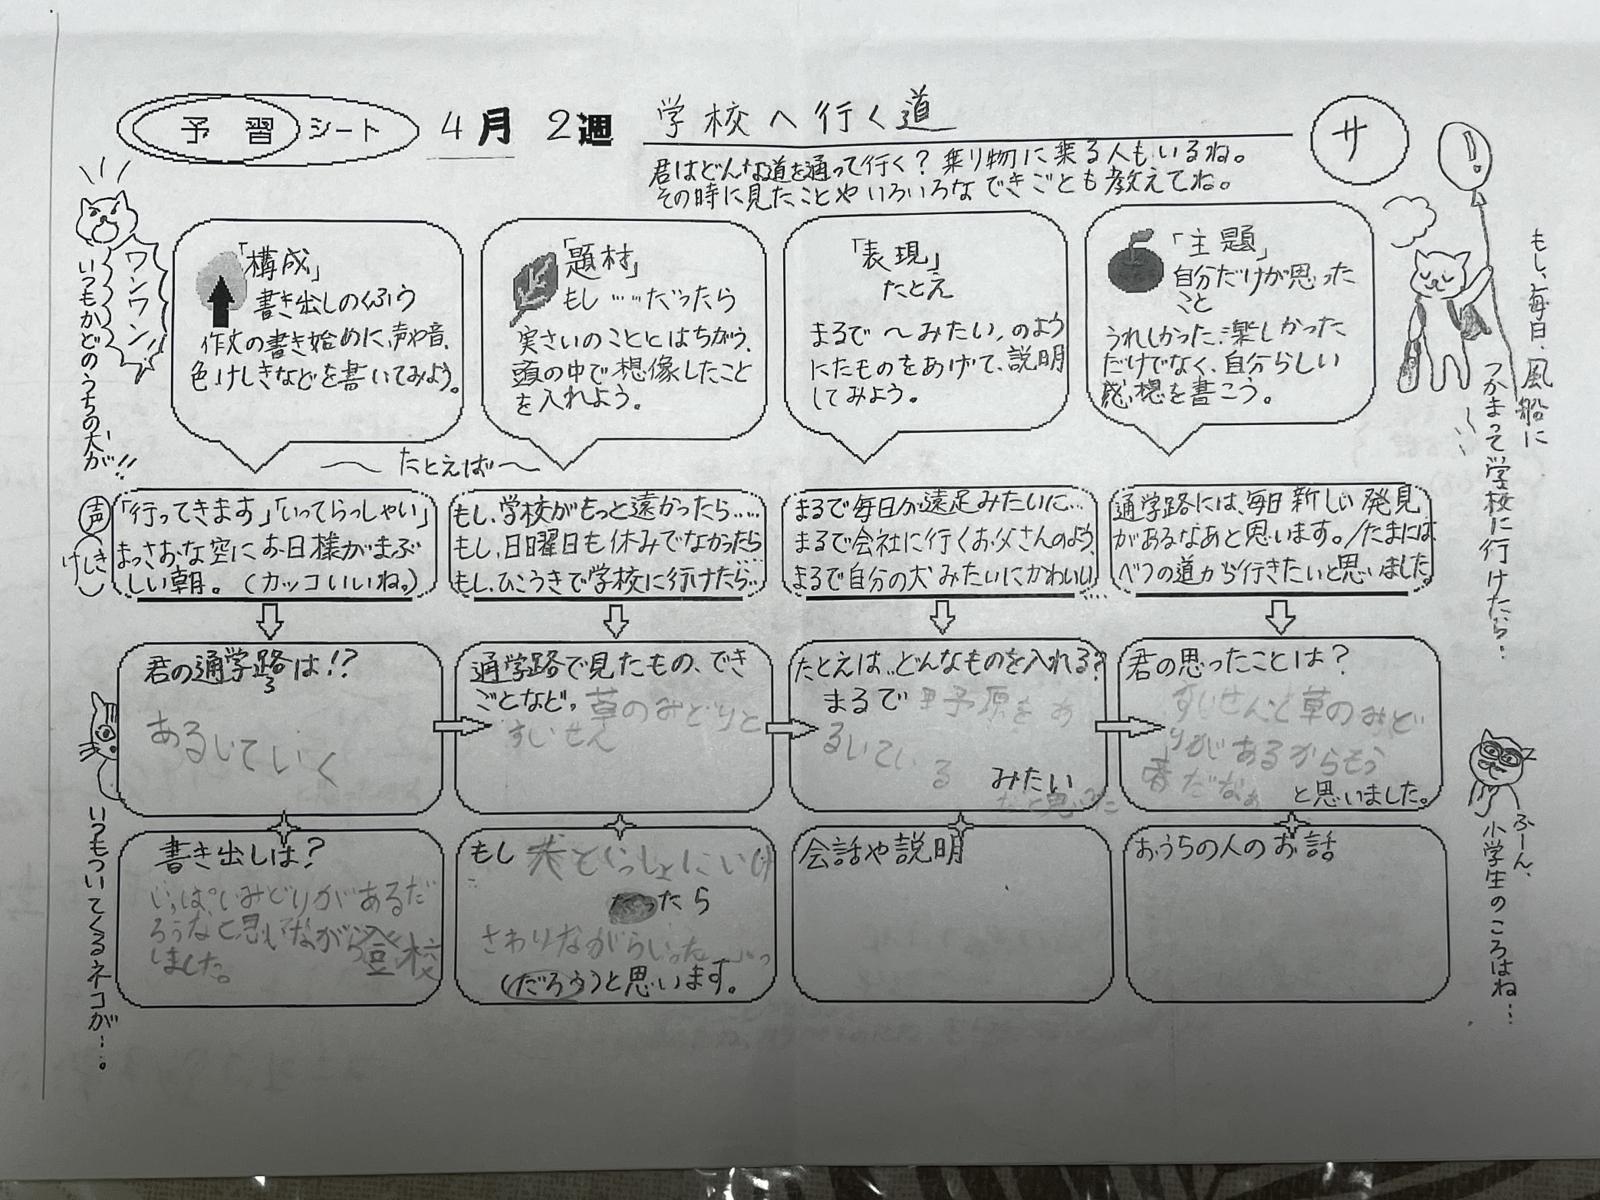 予習シート 4月 2週 学校へ行く道
サ
君はどんな道を通って行く？乗り物に乗る人もいるね。
その時に見たことやいろいろなできごとも教えてね。
ワンワン!
いつもかどのうちの犬が!!
「構成」
書き出しのくふう
作文の書き始めに、声や音、
色、けしきなどを書いてみよう。
「題材」
もし……だったら
実さいのこととはちがう、
頭の中で想像したこと
を入れよう。
「表現」
たとえ
まるで〜みたい,のよう
にたものをあげて、説明
してみよう。
「主題」
自分だけが思った
こと
うれしかった、楽しかった
だけでなく、自分らしい
感想を書こう。
!
もし、毎日、風船に
つかまって学校に行けたら…
〜たとえば〜
声
けしき
「行ってきます」「いってらっしゃい」
まっさおな空にお日様がまぶ
しい朝。(カッコいいね。)
もし、学校がもっと遠かったら……
もし、日曜日も休みでなかったら…
もし、ひこうきで学校に行けたら…
まるで毎日が遠足みたいに…
まるで会社に行くお父さんのよう、
まるで自分の犬みたいにかわいい…
通学路には、毎日新しい発見
があるなあと思います。/たまには
べつの道から行きたいと思いました。
君の通学路は!?
ろ
あるいていく
通学路で見たもの、でき
ごとなど。草のみどりと
すいせん
たとえは…どんなものを入れる?
まるで 野原をあ
るいている
みたい
だと思った
君の思ったことは？
すいせんと草のみど
りがあるからもう
春だなぁ
と思いました。
いつもついてくるネコが…。
書き出しは？
いっぱいみどりがあるだ
ろうなと思いながら登校
しました。
もし 犬といっしょにいけ
たら
さわりながらいった
(だろう)と思います。
会話や説明
おうちの人のお話
ふーん、
小学生のころはね…